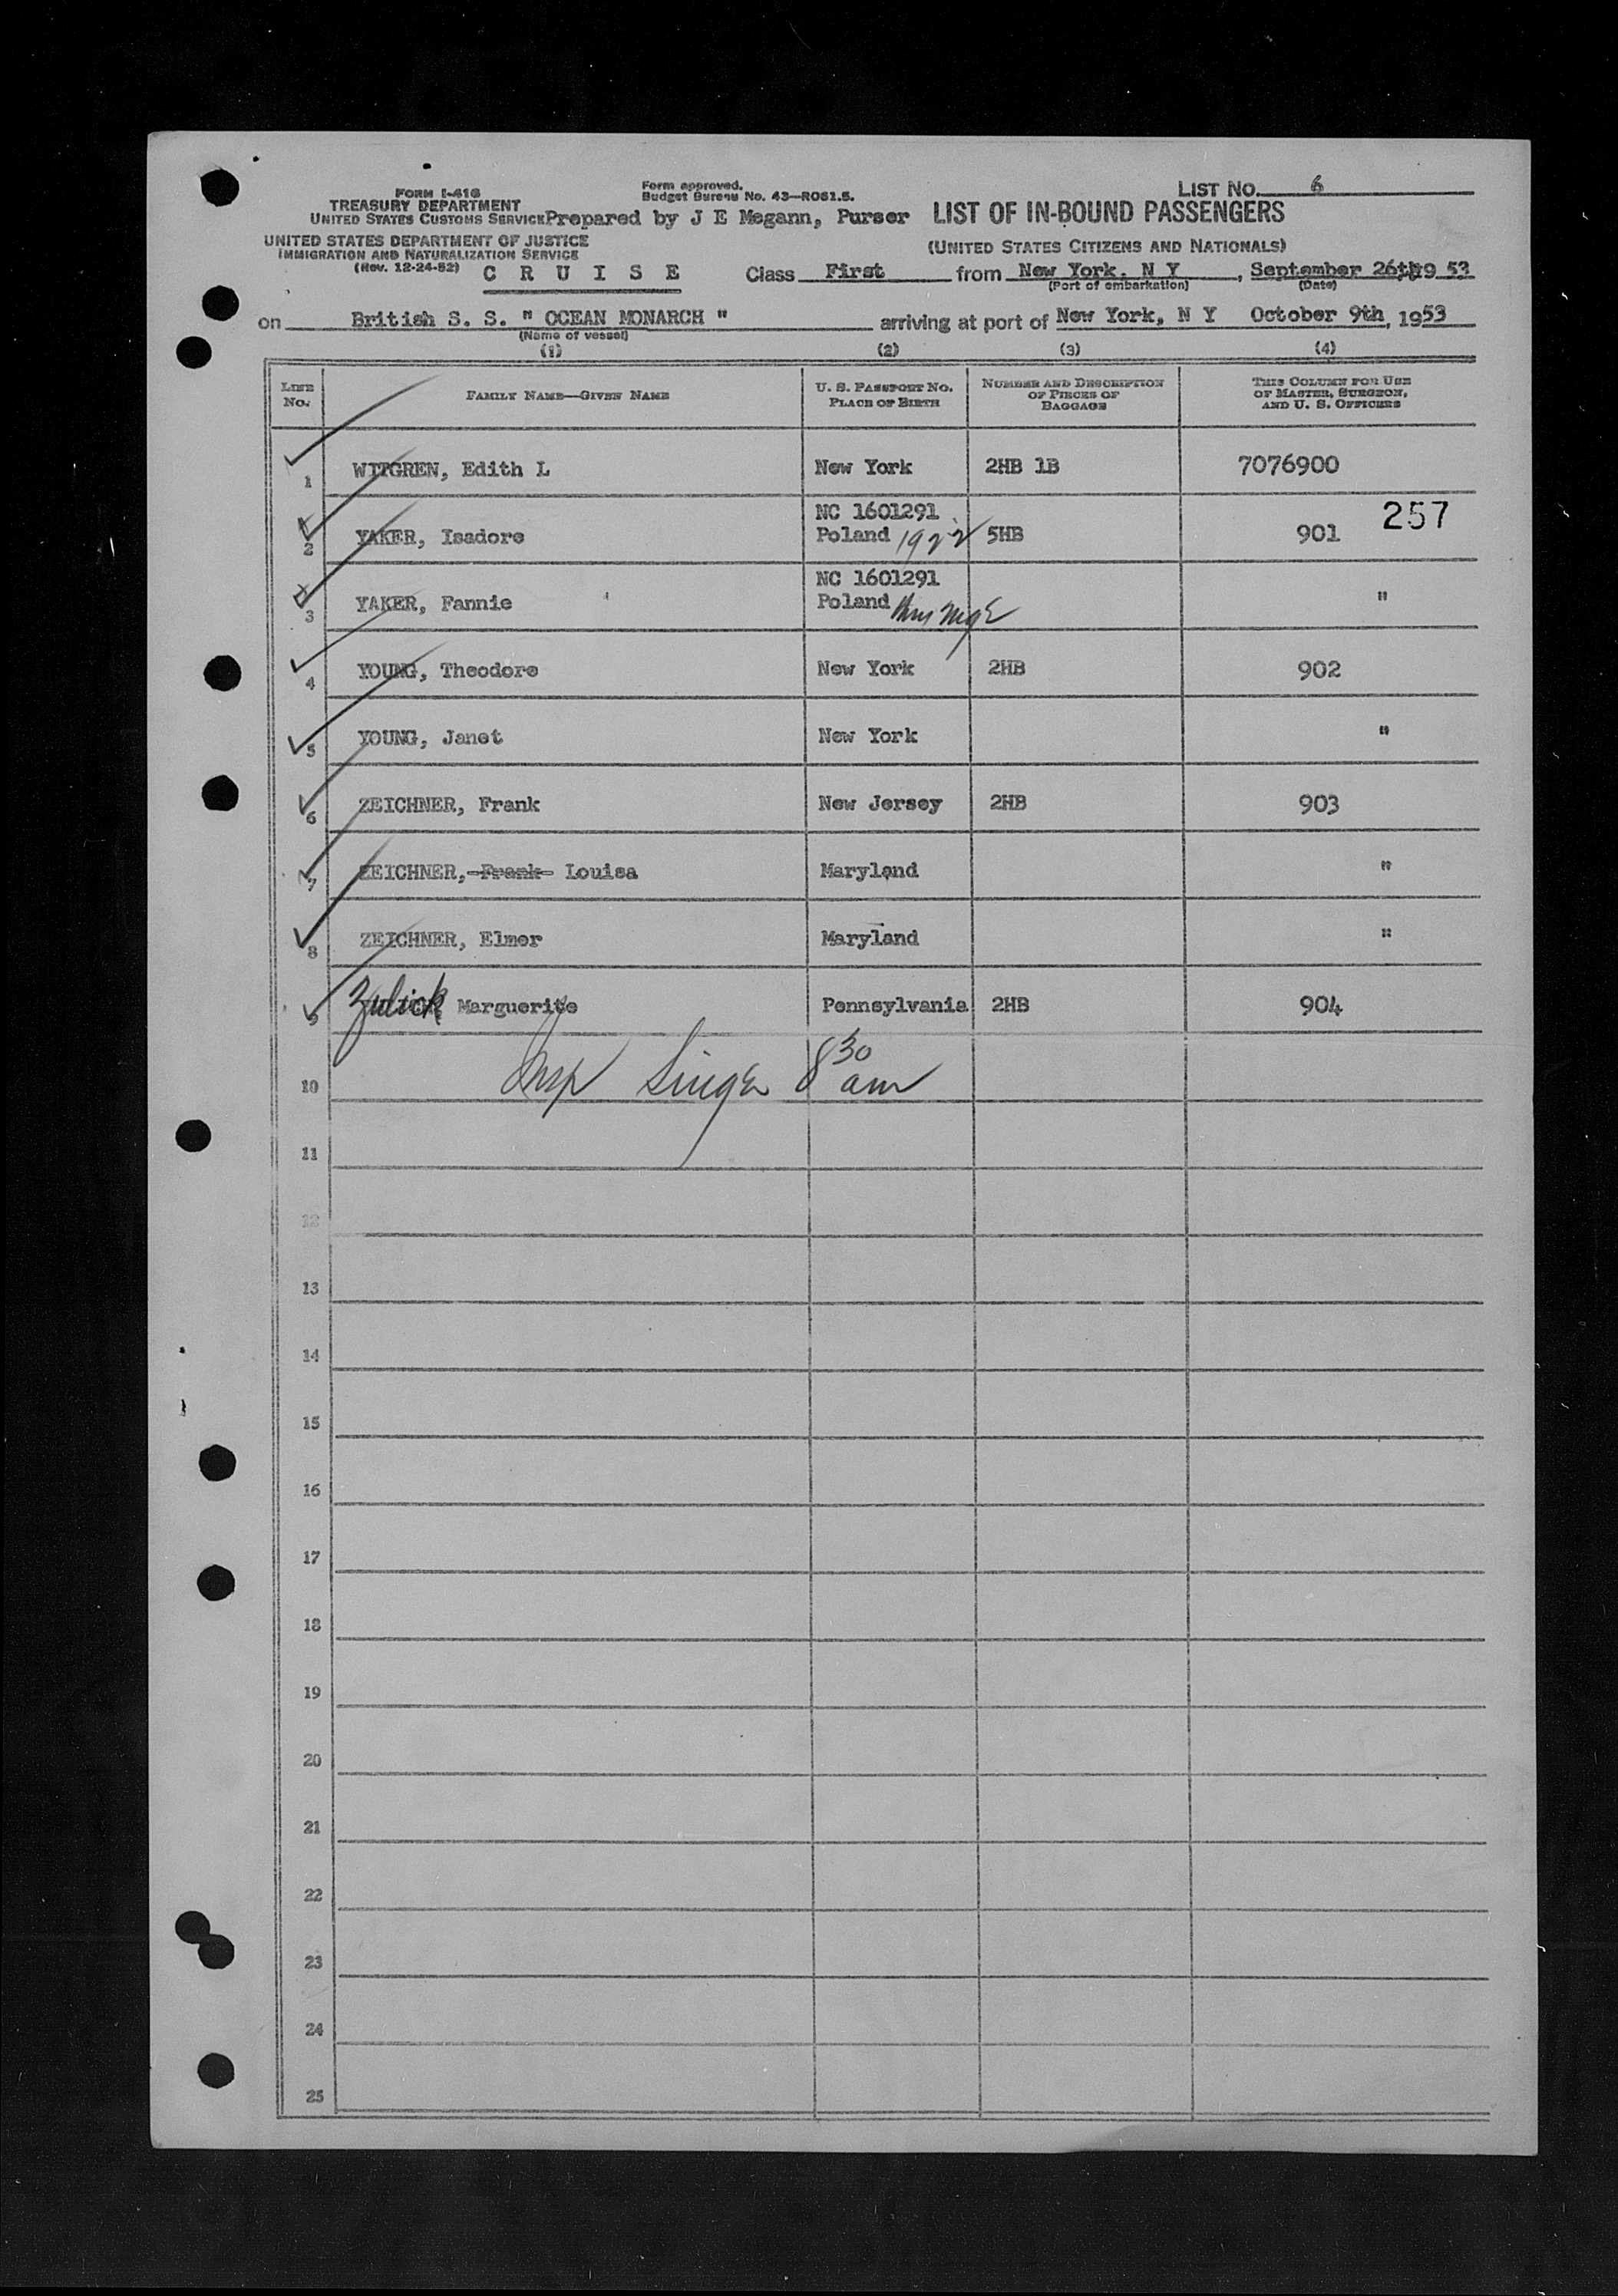 FORM I-418
TREASURY DEPARTMENT
UNITED STATES CUSTOMS SERVICE
UNITED STATES DEPARTMENT OF JUSTICE
IMMIGRATION AND NATURALIZATION SERVICE
(Rev. 12-24-52)
Form approved.
Budget Bureau No. 43—R061.5.
Prepared by J E Megann, Purser
LIST NO. 6
LIST OF IN-BOUND PASSENGERS
(UNITED STATES CITIZENS AND NATIONALS)
C R U I S E Class First from New York. N Y, September 26th, 1953
(Port of embarkation) (Date)
on British S. S. " OCEAN MONARCH " arriving at port of New York, N Y October 9th, 1953
(Name of vessel)
(1) (2) (3) (4)
LINE NO. FAMILY NAME—GIVEN NAME U. S. PASSPORT NO. PLACE OF BIRTH NUMBER AND DESCRIPTION OF PIECES OF BAGGAGE THIS COLUMN FOR USE OF MASTER, SURGEON, AND U. S. OFFICERS
1 WITGREN, Edith L New York 2HB 1B 7076900
257
NC 1601291
2 YAKER, Isadore Poland 1922 5HB 901
NC 1601291
3 YAKER, Fannie Poland "
4 YOUNG, Theodore New York 2HB 902
5 YOUNG, Janet New York "
6 ZEICHNER, Frank New Jersey 2HB 903
7 ZEICHNER, Frank Louisa Maryland "
8 ZEICHNER, Elmer Maryland "
9 Zulick Marguerite Pennsylvania 2HB 904
10 Insp Singer 8 30 am
11
12
13
14
15
16
17
18
19
20
21
22
23
24
25